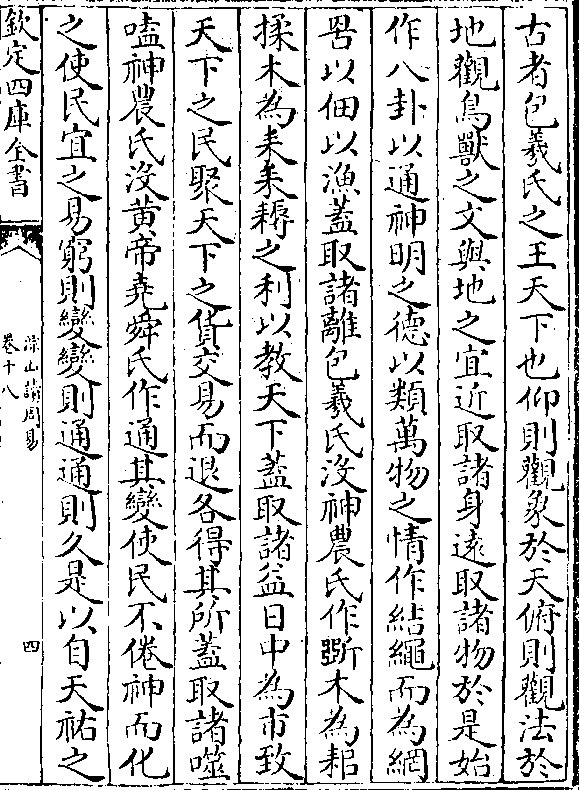 古者包羲氏之王天下也仰則觀象於天俯則觀法於
地觀鳥獸之文與地之宜近取諸身逺取諸物於是始
作八卦以通神明之德以類萬物之情作結繩而為網
罟以佃以漁蓋取諸離包羲氏沒神農氏作斵木為耜
揉木為耒耒耨之利以教天下蓋取諸益日中為市致
天下之民聚天下之貨交易而退各得其所蓋取諸噬
嗑神農氏沒黄帝堯舜氏作通其變使民不倦神而化
之使民宜之易窮則變變則通通則久是以自天祐之
欽定四庫全書
涂山讀周易
卷十八
四